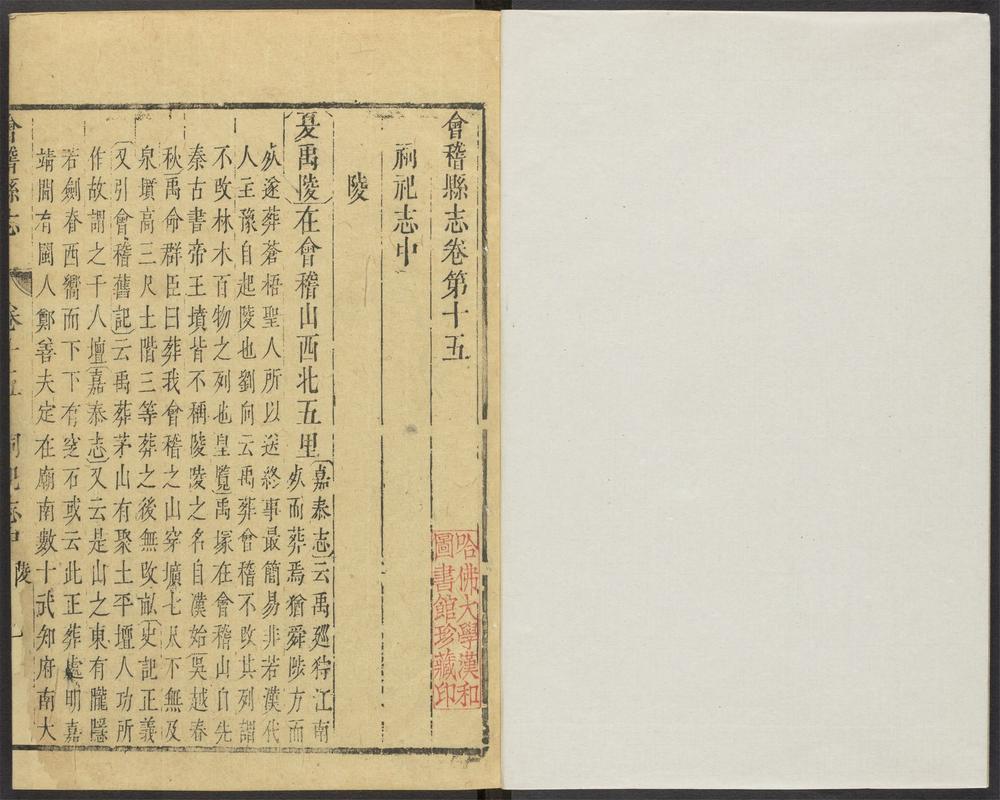 會稽縣志卷第十五
哈佛大學漢和
圖書館珍藏印
祠祀志中
陵
夏禹陵在會稽山西北五里
嘉泰志云禹廵狩江南
死而葬焉猶舜陟方而
死遂葬蒼梧聖人所以送終事最簡易非若漢代
人主豫自起陵也劉向云禹葬會稽不改其列謂
不改林木百物之列也皇覽禹塚在會稽山自先
秦古書帝王墳皆不稱陵陵之名自漢始吳越春
秋禹命群臣曰葬我會稽之山穿壙七尺下無及
泉墳高三尺土階三等葬之後無改畝史記正義
又引會稽舊記云禹葬茅山有聚土平壇人功所
作故謂之千人壇嘉泰志又云是山之東有隴隱
若劍脊西嚮而下下有窆石或云此正葬處明嘉
靖間有閩人鄭善夫定在廟南數十武知府南大
會稽縣志
卷十五 祠祀志中 陵 一